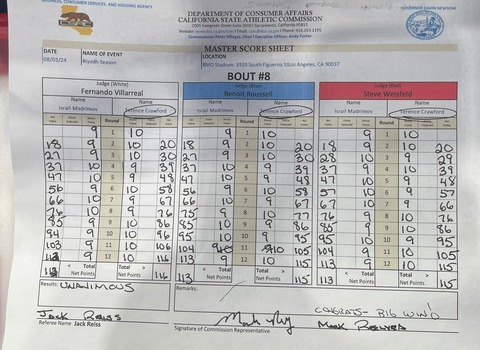 BUSINESS, CONSUMER SERVICES, AND HOUSING AGENCY
GOVERNOR GAVIN NEWSOM
DEPARTMENT OF CONSUMER AFFAIRS
CALIFORNIA STATE ATHLETIC COMMISSION
2005 Evergreen Street Suite 2010 | Sacramento, California 95815
DATE 08/03/24
NAME OF EVENT Riyadh Season
MASTER SCORE SHEET
LOCATION
BMO Stadium: 3939 South Figueroa St Los Angeles, CA 90037
BOUT #8
Judge (White) Judge (Blue) Judge (Red)
Fernando Villarreal Benoit Roussell Steve Weisfeld
Name Name Name Name Name Name
Israil Madrimov Terence Crawford Israil Madrimov Terence Crawford Israil Madrimov Terence Crawford
Round Round Round
9 1 10 9 1 10 9 1 10
18 9 2 10 20 18 9 2 10 20 18 9 2 10 20
27 9 3 10 30 27 9 3 10 30 28 10 3 9 29
37 10 4 9 39 37 10 4 9 39 37 9 4 10 39
47 10 5 9 48 47 10 5 9 48 47 10 5 9 48
56 9 6 10 58 57 10 6 9 57 9 6 57
66 10 7 9 67 67 10 7 67 66 9 7 66
76 10 8 9 76 75 8 10 77 76 10 8 10 76
85 9 9 10 86 85 10 9 9 86 85 9 9 10 86
94 9 10 10 96 95 10 10 9 95 95 10 10 9 95
103 9 11 10 106 104 11 10 105 104 9 11 10 105
10 12 10 116 113 9 12 10 115 113 9 12 10 115
< Total > < Total > < Total >
113 Net Points 116 113 Net Points 115 113 Net Points 115
Results: UNANIMOUS
Remarks:
CONGRATS - BIG WIN
JACK REISS
Referee Name Jack Reiss
Signature of Commission Representative